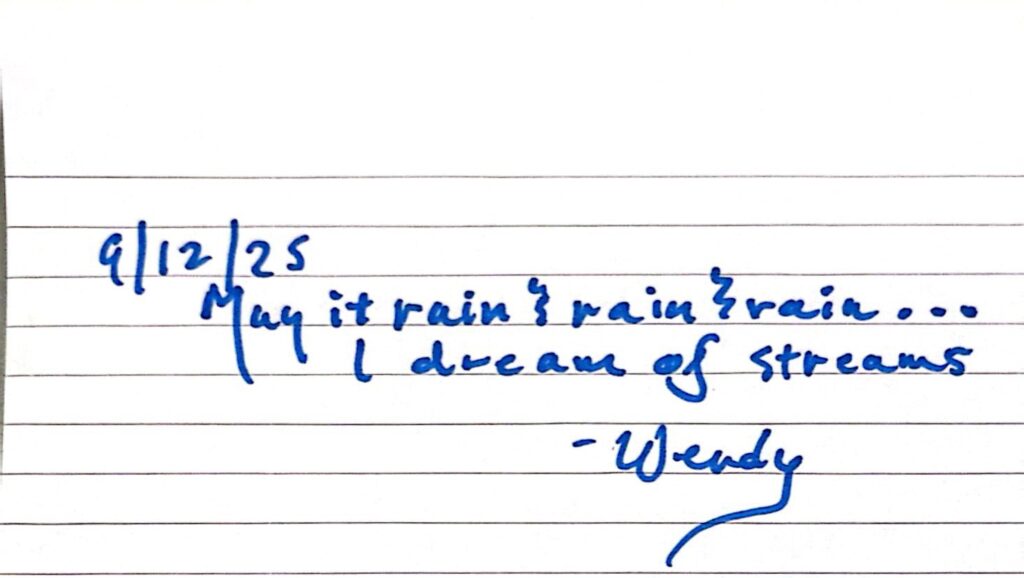 9/12/25
May it rain & rain & rain...
I dream of streams
- Wendy